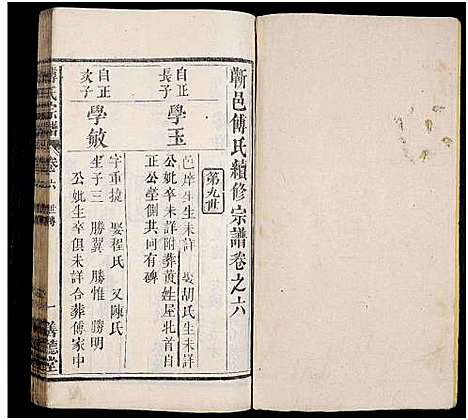 蘄邑傅氏續修宗譜卷之六
第九世
自正長子
學玉
邑庠生生未詳 娶胡氏生未詳
公妣卒未詳附葬黃姓屋北首自
正公塋側共向有碑
自正次子
學敏
字重捷 娶程氏 又陳氏
生子三 勝翼 勝惟 勝明
公妣生卒俱未詳合葬傅家中
傅氏宗譜
卷六 世傳
一
善慶堂